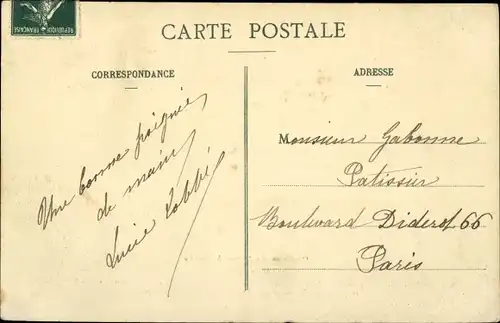 RÉPUBLIQUE FRANÇAISE
CARTE POSTALE
CORRESPONDANCE
ADRESSE
Une bonne poignée
de main
Lucie
Monsieur Gabonne
Patissier
Boulevard Diderot 66
Paris